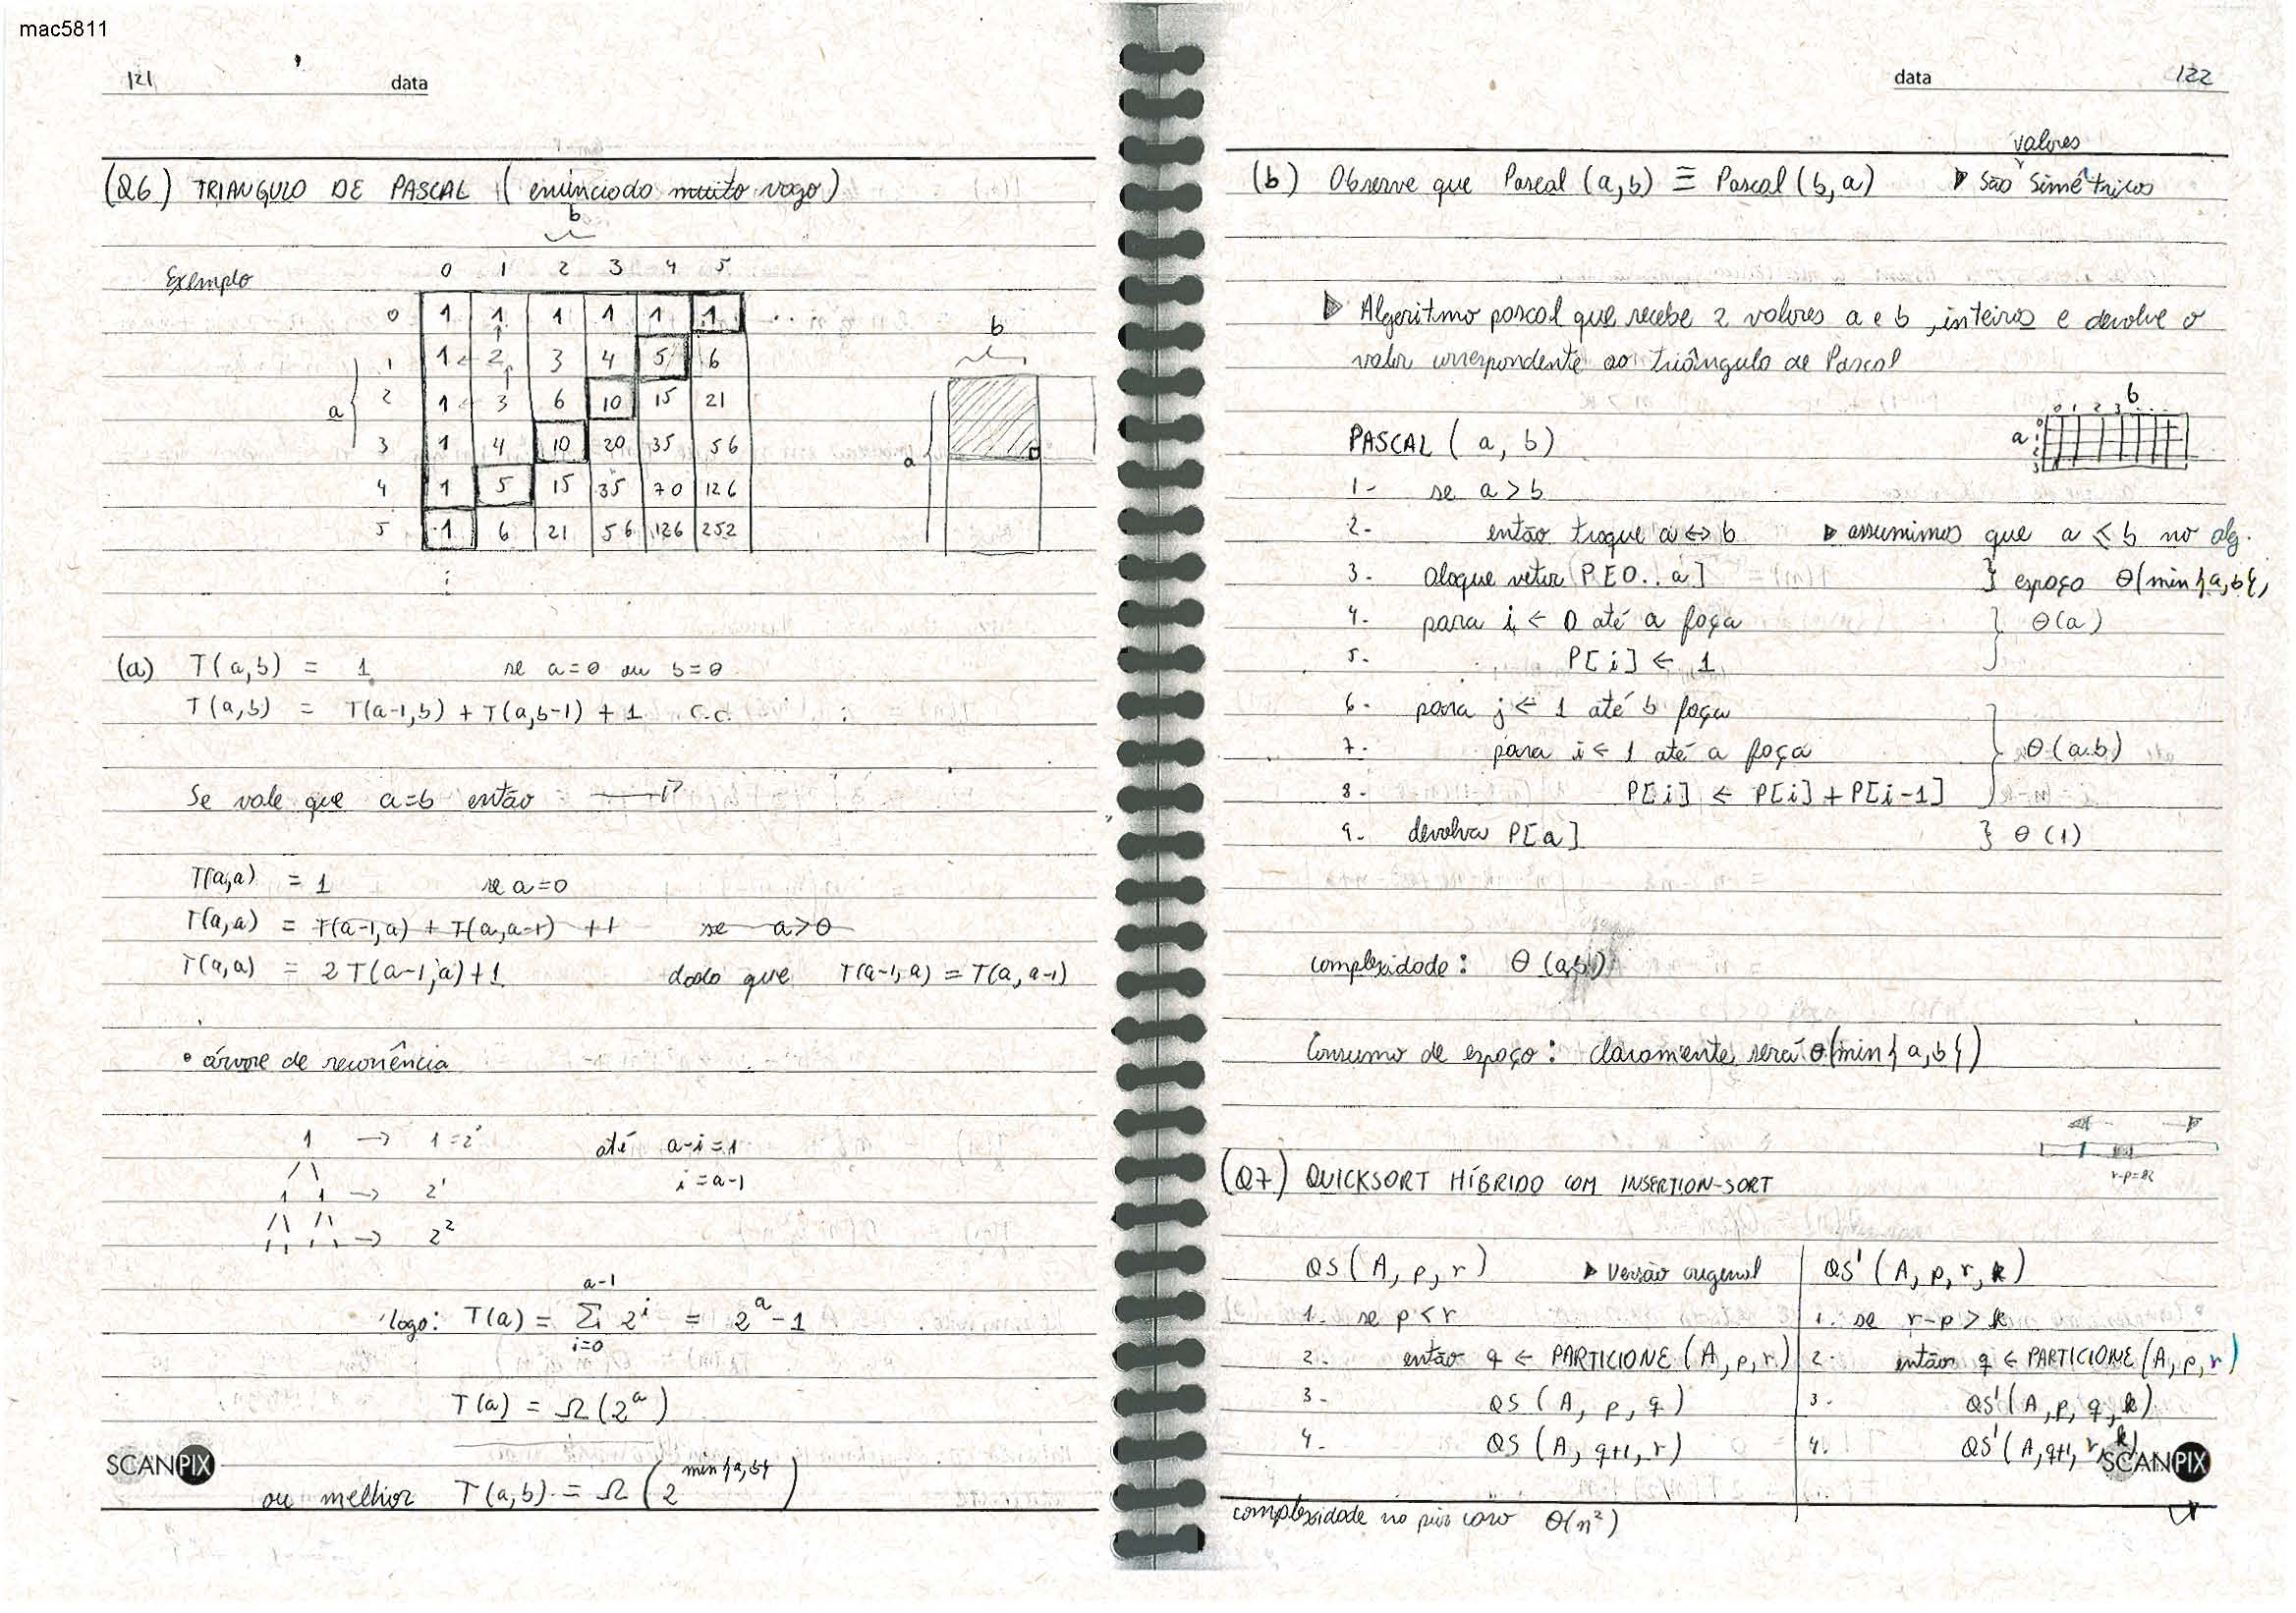 mac5811
121 data
(Q6) TRIANGULO DE PASCAL (enunciado muito vago)
b
Exemplo 0 1 2 3 4 5
0 1 1 1 1 1 1 ...
1 1 2 3 4 5 6
2 1 3 6 10 15 21
3 1 4 10 20 35 56
4 1 5 15 35 70 126
5 1 6 21 56 126 252
a
b
a
(a) T(a,b) = 1 se a=0 ou b=0
T(a,b) = T(a-1,b) + T(a,b-1) + 1 c.c.
Se vale que a=b então
T(a,a) = 1 se a=0
T(a,a) = T(a-1,a) + T(a,a-1) + 1 se a>0
T(a,a) = 2T(a-1,a)+1 dado que T(a-1,a) = T(a,a-1)
• árvore de recorrência
1 → 1=2⁰ até a-i=1
1 1 → 2¹ i=a-1
→ 2²
logo: T(a) = Σ_{i=0}^{a-1} 2^i = 2^a - 1
T(a) = Ω(2^a)
ou melhor T(a,b) = Ω(2^{min{a,b}})
SCANPIX
data 122
valores
(b) Observe que Pascal(a,b) ≡ Pascal(b,a) ▷ São simétricos
▷ Algoritmo pascal que recebe 2 valores a e b, inteiros e devolve o
valor correspondente ao triângulo de Pascal
b
0 1 2 3 ...
a 0 1 2 3
PASCAL (a, b)
1- se a > b
2- então troque a ↔ b ▷ assumimos que a ≤ b no alg.
3- aloque vetor P[0..a] } espaço Θ(min{a,b})
4. para i ← 0 até a faça } Θ(a)
5. P[i] ← 1
6. para j ← 1 até b faça
7. para i ← 1 até a faça } Θ(a.b)
8. P[i] ← P[i] + P[i-1]
9. devolva P[a] } Θ(1)
complexidade: Θ(a.b)
Consumo de espaço: claramente será Θ(min{a,b})
(Q7) QUICKSORT HÍBRIDO COM INSERTION-SORT
QS(A, p, r) ▷ Versão original QS'(A, p, r, k)
1. se p < r 1. se r-p > k
2. então q ← PARTICIONE(A, p, r) 2. então q ← PARTICIONE(A, p, r)
3- QS(A, p, q) 3. QS'(A, p, q, k)
4- QS(A, q+1, r) 4. QS'(A, q+1, r, k)
SCANPIX
complexidade no pior caso Θ(n²)